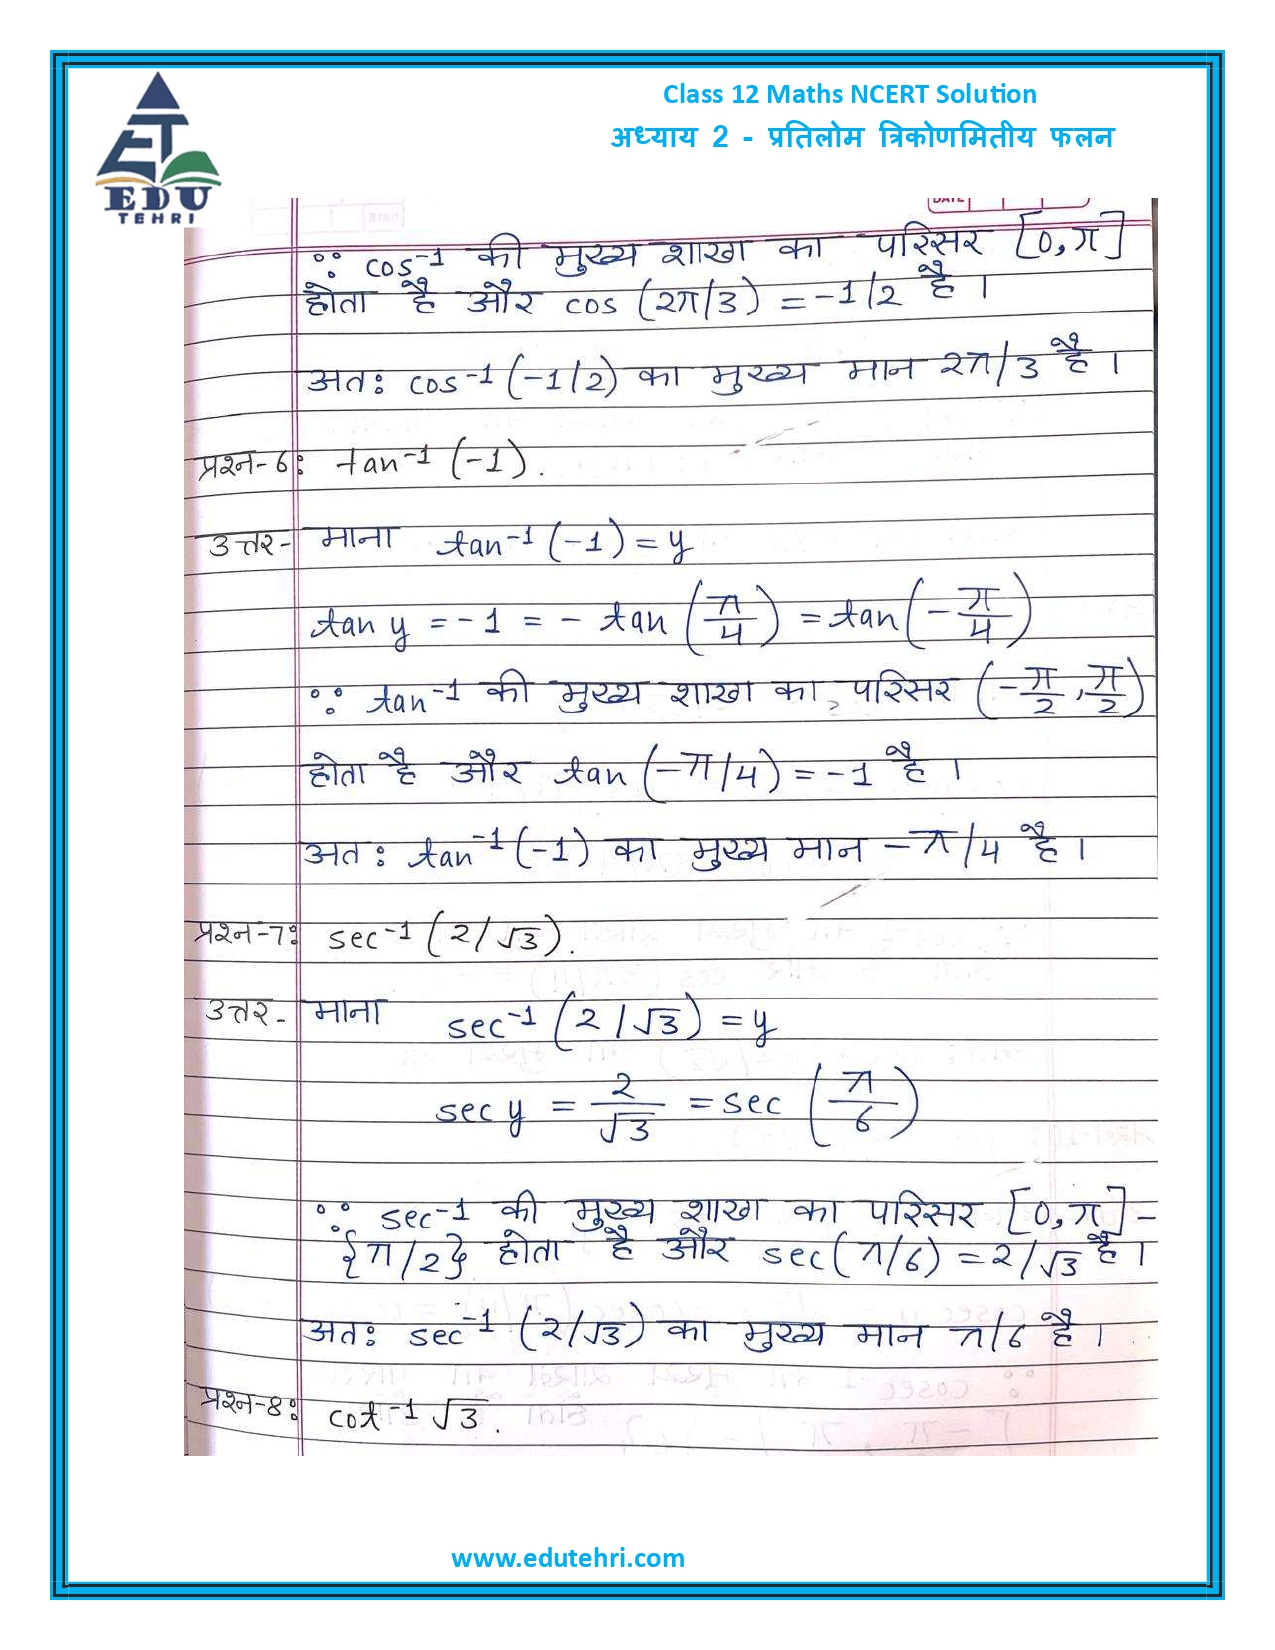 Class 12 Maths NCERT Solution
अध्याय 2 - प्रतिलोम त्रिकोणमितीय फलन
EDU
TEHRI
DATE
∵ cos⁻¹ की मुख्य शाखा का परिसर [0, π]
होता है और cos (2π/3) = -1/2 है।
अतः cos⁻¹ (-1/2) का मुख्य मान 2π/3 है।
प्रश्न-6: tan⁻¹ (-1).
उत्तर- माना tan⁻¹ (-1) = y
tan y = -1 = - tan (π/4) = tan (-π/4)
∵ tan⁻¹ की मुख्य शाखा का परिसर (-π/2, π/2)
होता है और tan (-π/4) = -1 है।
अतः tan⁻¹ (-1) का मुख्य मान -π/4 है।
प्रश्न-7: sec⁻¹ (2/√3).
उत्तर- माना sec⁻¹ (2/√3) = y
sec y = 2/√3 = sec (π/6)
∵ sec⁻¹ की मुख्य शाखा का परिसर [0, π] -
{π/2} होता है और sec(π/6) = 2/√3 है।
अतः sec⁻¹ (2/√3) का मुख्य मान π/6 है।
प्रश्न-8: cot⁻¹ √3.
www.edutehri.com